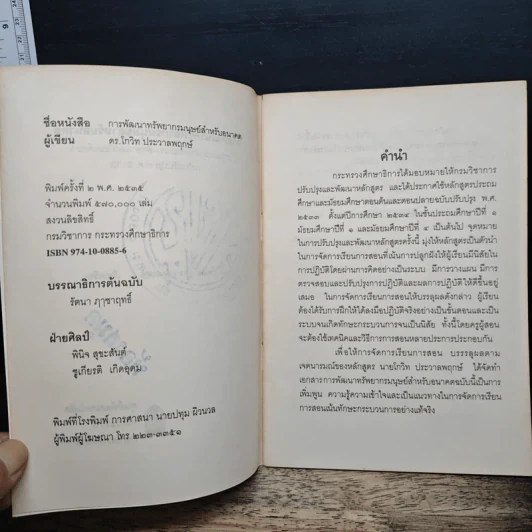 ชื่อหนังสือ การพัฒนาทรัพยากรมนุษย์สำหรับอนาคต
ผู้เขียน ดร.โกวิท ประวาลพฤกษ์
พิมพ์ครั้งที่ ๒ พ.ศ. ๒๕๓๕
จำนวนพิมพ์ ๕๗๐,๐๐๐ เล่ม
สงวนลิขสิทธิ์
กรมวิชาการ กระทรวงศึกษาธิการ
ISBN 974-10-0885-6
บรรณาธิการต้นฉบับ
รัตนา ภาชาฤทธิ์
ฝ่ายศิลป์
พินิจ สุขะสันต์
ชูเกียรติ เกิดอุดม
พิมพ์ที่โรงพิมพ์ การศาสนา นายปทุม ผิวนวล
ผู้พิมพ์ผู้โฆษณา โทร ๒๒๓-๓๓๕๑
คำนำ
กระทรวงศึกษาธิการได้มอบหมายให้กรมวิชาการ
ปรับปรุงและพัฒนาหลักสูตร และได้ประกาศใช้หลักสูตรประถม
ศึกษาและมัธยมศึกษาตอนต้นและตอนปลายฉบับปรับปรุง พ.ศ.
๒๕๓๓ ตั้งแต่ปีการศึกษา ๒๕๓๔ ในชั้นประถมศึกษาปีที่ ๑
มัธยมศึกษาปีที่ ๑ และมัธยมศึกษาปีที่ ๔ เป็นต้นไป จุดหมาย
ในการปรับปรุงและพัฒนาหลักสูตรครั้งนี้ มุ่งให้หลักสูตรเป็นตัวนำ
ในการจัดการเรียนการสอนที่เน้นการปลูกฝังให้ผู้เรียนมีนิสัยใน
การปฏิบัติโดยผ่านการคิดอย่างเป็นระบบ มีการวางแผน มีการ
ตรวจสอบและปรับปรุงการปฏิบัติและผลการปฏิบัติให้ดีขึ้นอยู่
เสมอ ในการจัดการเรียนการสอนให้บรรลุผลดังกล่าว ผู้เรียน
ต้องได้รับการฝึกให้ได้ลงมือปฏิบัติจริงอย่างเป็นขั้นตอนและเป็น
ระบบจนเกิดทักษะกระบวนการจนเป็นนิสัย ทั้งนี้โดยครูผู้สอน
จะต้องใช้เทคนิคและวิธีการการสอนหลายประการประกอบกัน
เพื่อให้การจัดการเรียนการสอน บรรรลุผลตาม
เจตนารมณ์ของหลักสูตร นายโกวิท ประวาลพฤกษ์ ได้จัดทำ
เอกสารการพัฒนาทรัพยากรมนุษย์สำหรับอนาคตฉบับนี้เป็นการ
เพิ่มพูน ความรู้ความเข้าใจและเป็นแนวทางในการจัดการเรียน
การสอนเน้นทักษะกระบวนการอย่างแท้จริง